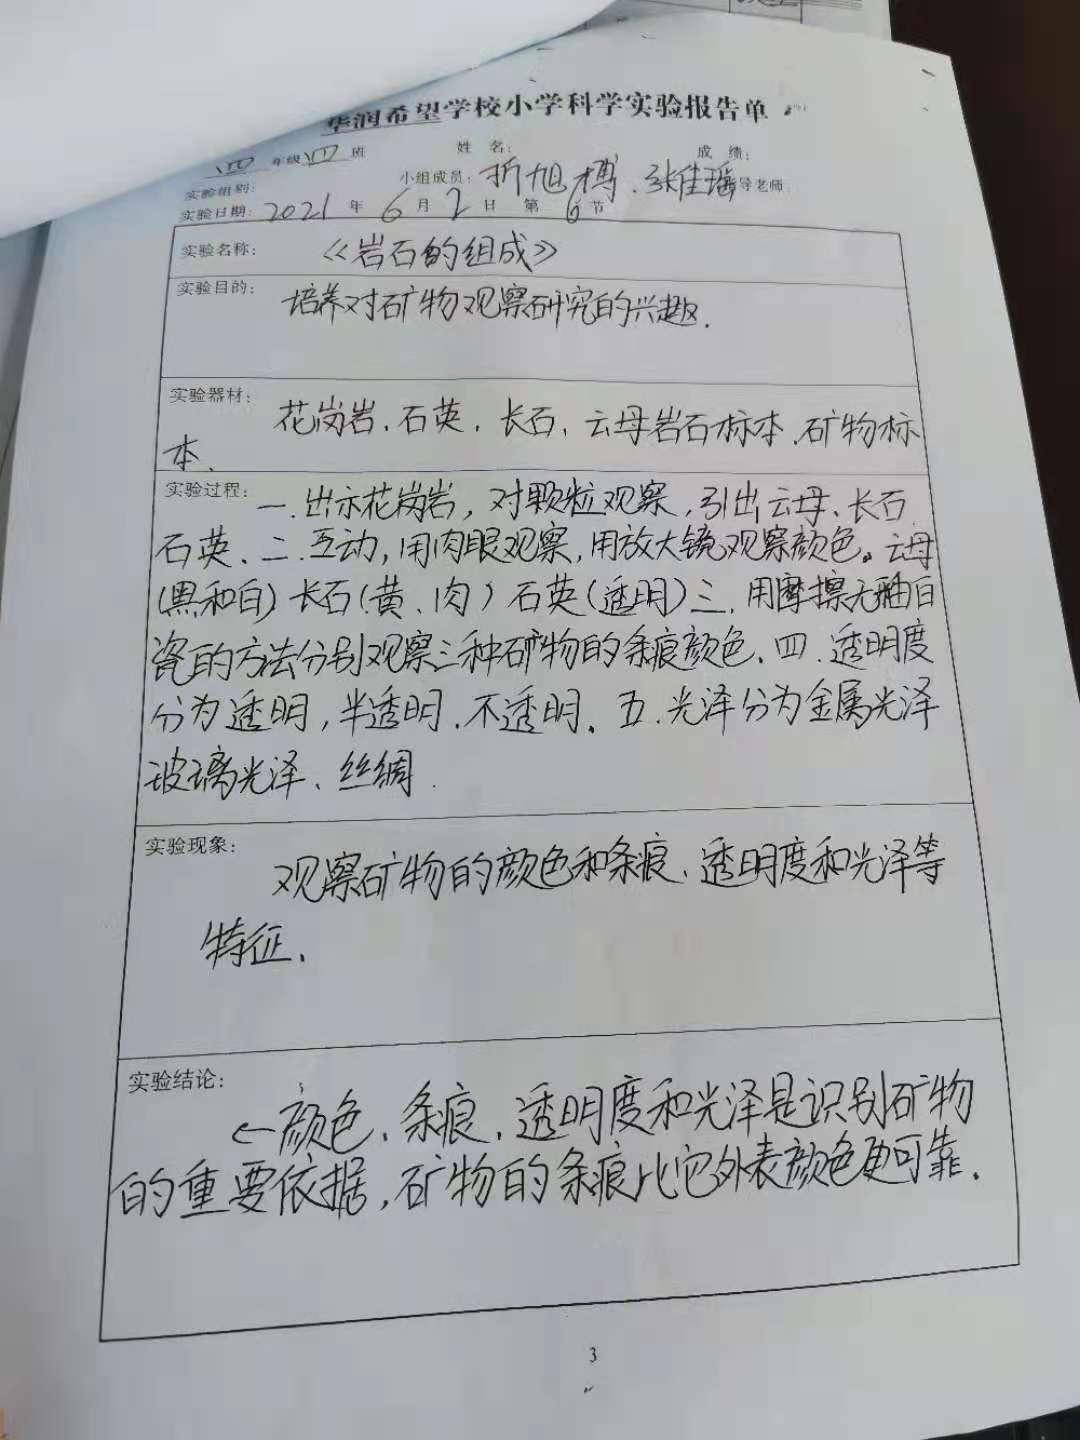 华润希望学校小学科学实验报告单
四 年级 四 班 姓 名： 成 绩：
实验组别： 小组成员：折旭博、张佳瑶 导老师
实验日期：2021 年 6 月 2 日 第 6 节
实验名称： 《岩石的组成》
实验目的： 培养对矿物观察研究的兴趣.
实验器材： 花岗岩、石英、长石、云母岩石标本、矿物标
本、
实验过程： 一.出示花岗岩，对颗粒观察，引出云母、长石
石英、二.互动，用肉眼观察，用放大镜观察颜色。云母
(黑和白) 长石(黄、肉) 石英(透明) 三.用摩擦无釉白
瓷的方法分别观察三种矿物的条痕颜色、四.透明度
分为透明，半透明、不透明。五.光泽分为金属光泽
玻璃光泽、丝绸.
实验现象： 观察矿物的颜色和条痕、透明度和光泽等
特征、
实验结论：
←颜色、条痕、透明度和光泽是识别矿物
的重要依据，矿物的条痕比它外表颜色更可靠.
3